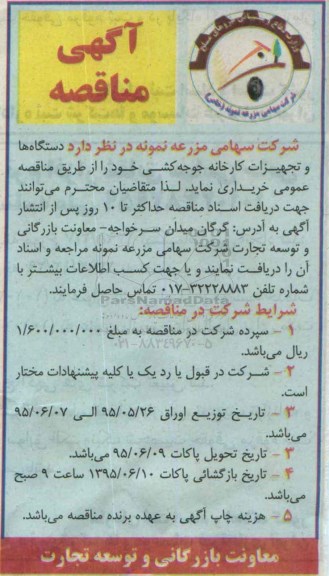 آگهی
مناقصه
شرکت سهامی مزرعه نمونه (سهامی)
شرکت سهامی مزرعه نمونه در نظر دارد دستگاه‌ها
و تجهیزات کارخانه جوجه‌کشی خود را از طریق مناقصه
عمومی خریداری نماید. لذا متقاضیان محترم می‌توانند
جهت دریافت اسناد مناقصه حداکثر تا ۱۰ روز پس از انتشار
آگهی به آدرس: گرگان میدان سرخواجه- معاونت بازرگانی
و توسعه تجارت شرکت سهامی مزرعه نمونه مراجعه و اسناد
آن را دریافت نمایند و یا جهت کسب اطلاعات بیشتر با
شماره تلفن ۳۲۲۲۸۸۸۳-۰۱۷ تماس حاصل فرمایند.
ParsNamadData
شرایط شرکت در مناقصه:
۱ - سپرده شرکت در مناقصه به مبلغ ۱/۶۰۰/۰۰۰/۰۰۰
ریال می‌باشد.
۲ - شرکت در قبول یا رد یک یا کلیه پیشنهادات مختار
است.
۳ - تاریخ توزیع اوراق ۹۵/۰۵/۲۶ الی ۹۵/۰۶/۰۷
می‌باشد.
۳ - تاریخ تحویل پاکات ۹۵/۰۶/۰۹ می‌باشد.
۴ - تاریخ بازگشائی پاکات ۱۳۹۵/۰۶/۱۰ ساعت ۹ صبح
می‌باشد.
۵ - هزینه چاپ آگهی به عهده برنده مناقصه می‌باشد.
معاونت بازرگانی و توسعه تجارت